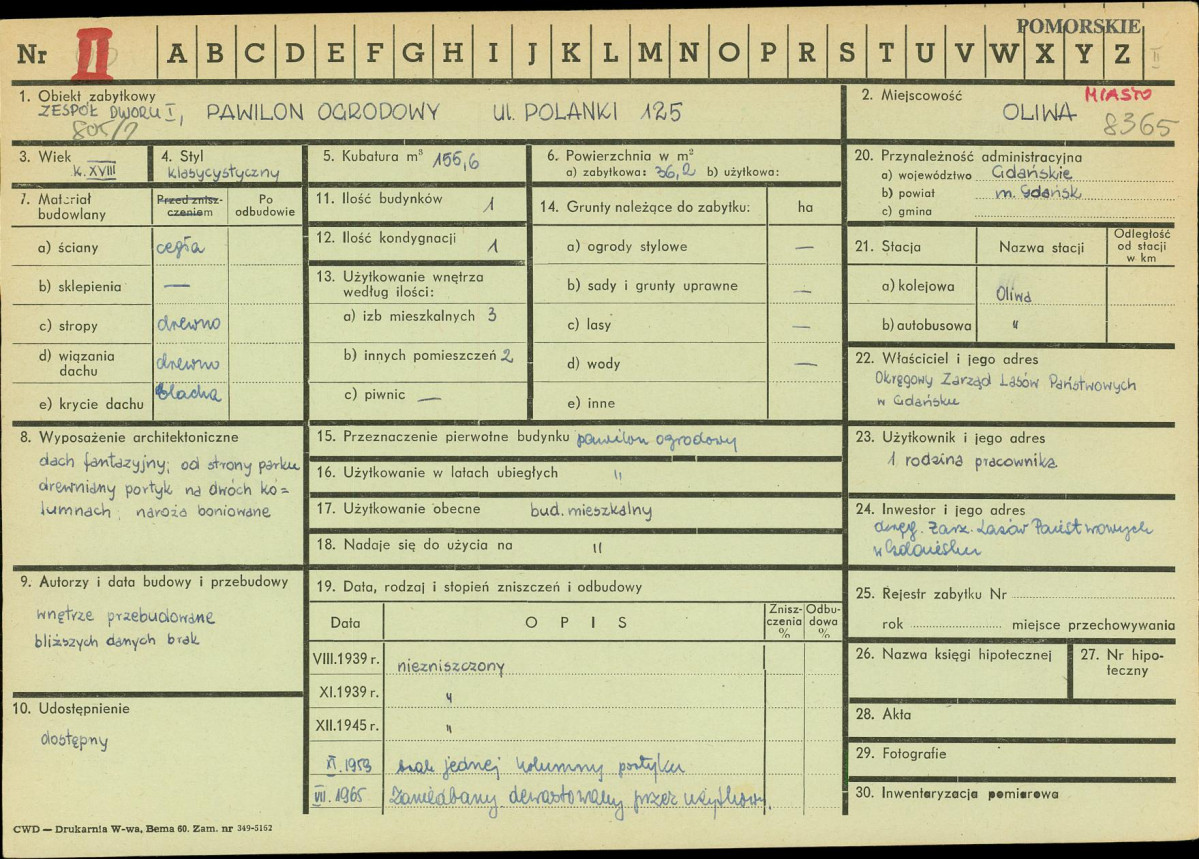 POMORSKIE
Nr II A B C D E F G H I J K L M N O P R S T U V W X Y Z II
1. Obiekt zabytkowy
ZESPÓŁ DWORU I, PAWILON OGRODOWY UL. POLANKI 125
805/2
2. Miejscowość MIASTO
OLIWA 8365
3. Wiek
k. XVIII
4. Styl
klasycystyczny
5. Kubatura m³ 155,6
6. Powierzchnia w m²
a) zabytkowa: 36,2 b) użytkowa:
7. Materiał budowlany
Przed zniszczeniem
Po odbudowie
a) ściany cegła
b) sklepienia —
c) stropy drewno
d) wiązania dachu drewno
e) krycie dachu blacha
8. Wyposażenie architektoniczne
dach fantazyjny; od strony parku
drewniany portyk na dwóch ko=
lumnach, naroża boniowane
9. Autorzy i data budowy i przebudowy
wnętrze przebudowane
bliższych danych brak
10. Udostępnienie
dostępny
11. Ilość budynków 1
12. Ilość kondygnacji 1
13. Użytkowanie wnętrza
według ilości:
a) izb mieszkalnych 3
b) innych pomieszczeń 2
c) piwnic —
14. Grunty należące do zabytku: ha
a) ogrody stylowe —
b) sady i grunty uprawne —
c) lasy —
d) wody —
e) inne
15. Przeznaczenie pierwotne budynku pawilon ogrodowy
16. Użytkowanie w latach ubiegłych "
17. Użytkowanie obecne bud. mieszkalny
18. Nadaje się do użycia na "
19. Data, rodzaj i stopień zniszczeń i odbudowy
Data OPIS Zniszczenia % Odbudowa %
VIII.1939 r. niezniszczony
XI.1939 r. "
XII.1945 r. "
XI.1953 brak jednej kolumny portyku
VII.1965 Zaniedbany dewastowany przez użytkown.
20. Przynależność administracyjna
a) województwo Gdańskie
b) powiat m. Gdańsk
c) gmina
21. Stacja Nazwa stacji Odległość od stacji w km
a) kolejowa Oliwa
b) autobusowa "
22. Właściciel i jego adres
Okręgowy Zarząd Lasów Państwowych
w Gdańsku
23. Użytkownik i jego adres
1 rodzina pracownika
24. Inwestor i jego adres
okręg. Zarz. Lasów Państwowych
w Gdańsku
25. Rejestr zabytku Nr
rok miejsce przechowywania
26. Nazwa księgi hipotecznej
27. Nr hipoteczny
28. Akta
29. Fotografie
30. Inwentaryzacja pomiarowa
CWD — Drukarnia W-wa, Bema 60. Zam. nr 349-5162